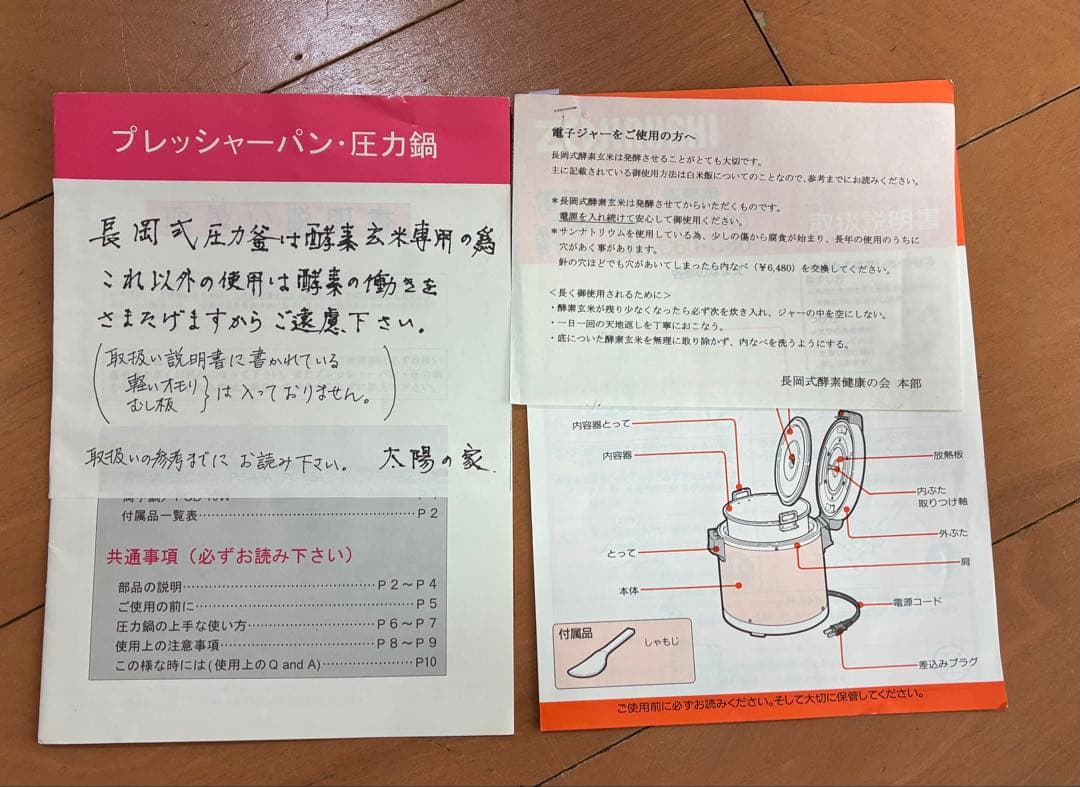 プレッシャーパン・圧力鍋
長岡式圧力釜は酵素玄米専用の為
これ以外の使用は酵素の働きを
さまたげますからご遠慮下さい。
(取扱い説明書に書かれている
軽いオモリ
むし板 }は入っておりません。)
取扱いの参考までにお読み下さい。 太陽の家
付属品一覧表 P 2
共通事項（必ずお読み下さい）
部品の説明 P 2～P 4
ご使用の前に P 5
圧力鍋の上手な使い方 P 6～P 7
使用上の注意事項 P 8～P 9
この様な時には(使用上のQ and A) P10
電子ジャーをご使用の方へ
長岡式酵素玄米は発酵させることがとても大切です。
主に記載されている御使用方法は白米飯についてのことなので、参考までにお読みください。
＊長岡式酵素玄米は発酵させてからいただくものです。
電源を入れ続けて安心して御使用ください。
＊サンナトリウムを使用している為、少しの傷から腐食が始まり、長年の使用のうちに
穴があく事があります。
針の穴ほどでも穴があいてしまったら内なべ（￥6,480）を交換してください。
＜長く御使用されるために＞
・酵素玄米が残り少なくなったら必ず次を炊き入れ、ジャーの中を空にしない。
・一日一回の天地返しを丁寧におこなう。
・底についた酵素玄米を無理に取り除かず、内なべを洗うようにする。
長岡式酵素健康の会 本部
内容器とって
内容器
とって
本体
放熱板
内ぶた
取りつけ軸
外ぶた
肩
電源コード
差込みプラグ
付属品
しゃもじ
ご使用前に必ずお読みください。そして大切に保管してください。